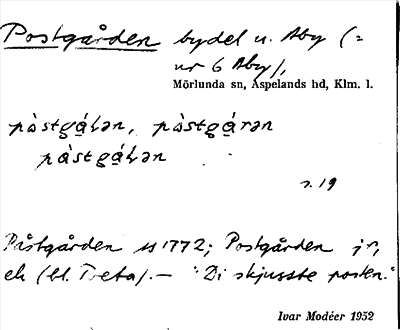 Postgården bydel u. Åby (=
nr 6 Åby),
Mörlunda sn, Aspelands hd, Klm. l.
pàstgá̱ɹən, pàstgá̱rən
pàstgá̱ɹən
s. 19
Påstgården 1772; Postgården jr,
ek (bl. Treta). — "Di skjusste posten."
Ivar Modéer 1952